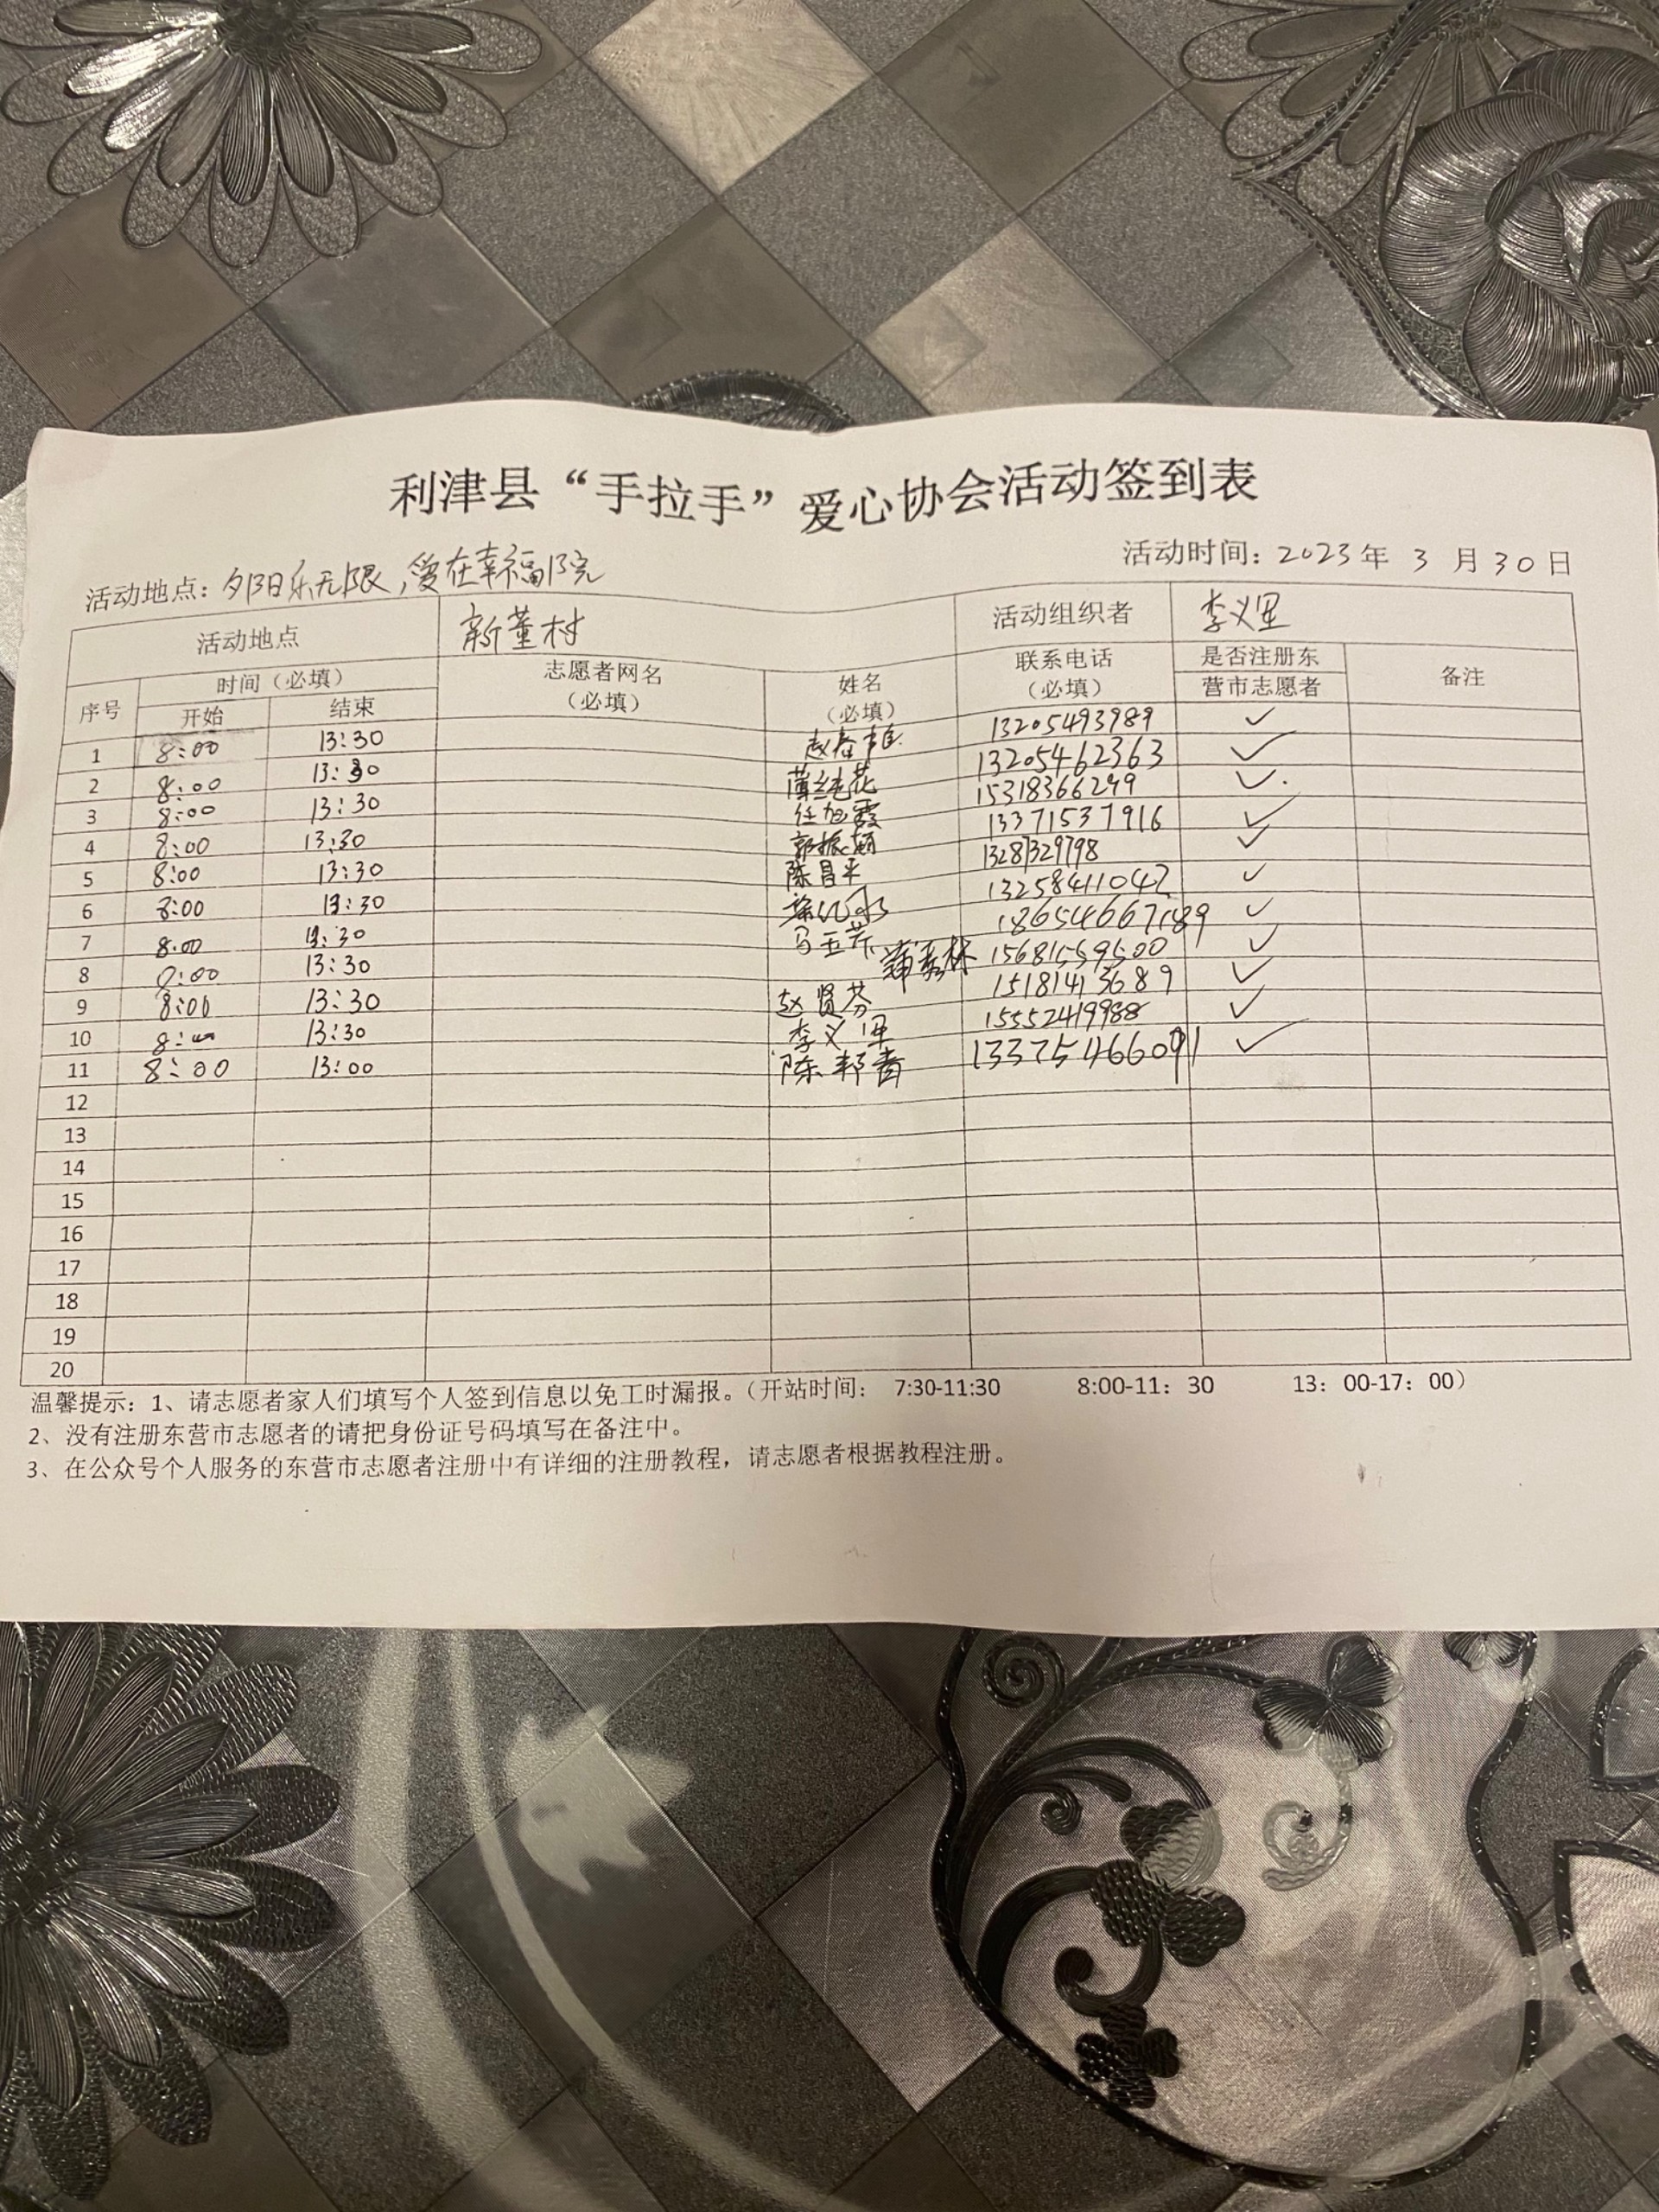 利津县“手拉手”爱心协会活动签到表
活动地点：夕阳乐无限，爱在幸福院 活动时间：2023年 3 月 30 日
活动地点 新董村 活动组织者 李义军
序号 时间（必填） 志愿者网名（必填） 姓名（必填） 联系电话（必填） 是否注册东营市志愿者 备注
开始 结束
1 8:00 13:30 13205493989 ✓
2 8:00 13:30 薄纯花 13205462363 ✓
3 8:00 13:30 任旭霞 15318366299 ✓
4 8:00 13:30 13371537916 ✓
5 8:00 13:30 陈昌平 13281329798 ✓
6 8:00 13:30 13258411042 ✓
7 8:00 13:30 马玉芹 18654667189 ✓
8 8:00 13:30 蒲秀林 15681559500 ✓
9 8:00 13:30 赵贤芬 15181413689 ✓
10 13:30 李义军 15552419988 ✓
11 8:00 13:00 陈邦青 13375466091 ✓
12
13
14
15
16
17
18
19
20
温馨提示：1、请志愿者家人们填写个人签到信息以免工时漏报。（开站时间： 7:30-11:30 8:00-11：30 13：00-17：00）
2、没有注册东营市志愿者的请把身份证号码填写在备注中。
3、在公众号个人服务的东营市志愿者注册中有详细的注册教程，请志愿者根据教程注册。